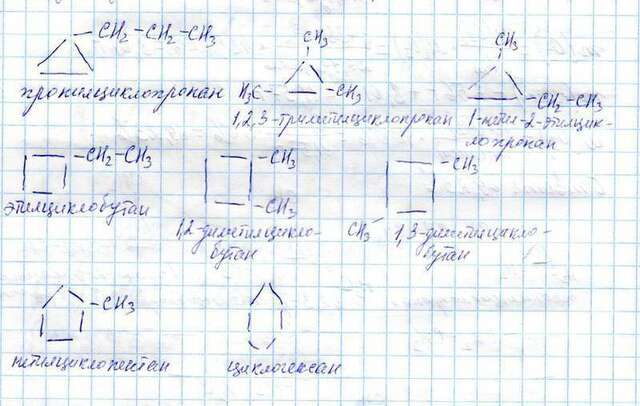 CH2 - CH2 - CH3
пропилциклопропан
CH3
H3C - - CH3
1,2,3-триметилциклопропан
CH3
- CH2 - CH3
1-метил-2-этилцик-
лопропан
- CH2 - CH3
этилциклобутан
- CH3
- CH3
1,2-диметилцикло-
бутан
- CH3
CH3
1,3-диметилцикло-
бутан
- CH3
метилциклопентан
циклогексан